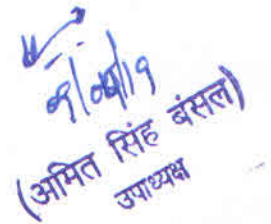 (अमित सिंह बंसल)
उपाध्यक्ष